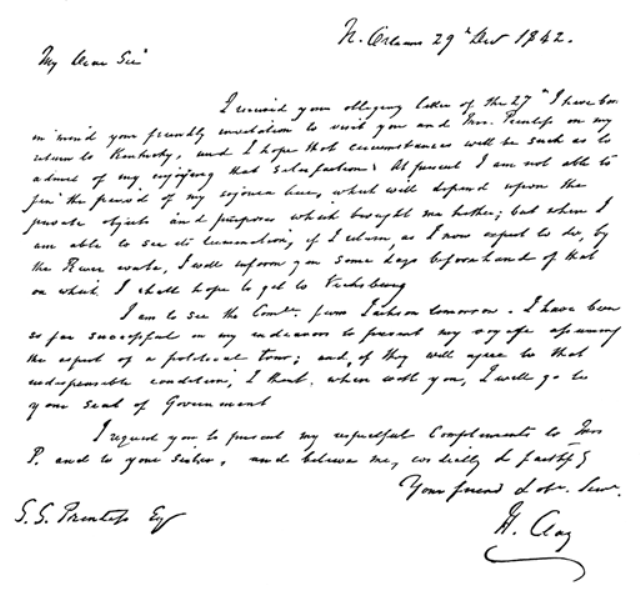 N. Orleans 29th Decr 1842.
My Dear Sir
I received your obliging letter of the 27th I have borne
in mind your friendly invitation to visit you and Mrs. Prentiss on my
return to Kentucky, and I hope that circumstances will be such as to
admit of my enjoying that satisfaction. At present I am not able to
fix the period of my sojourn here, which will depend upon the
private objects and purposes which brought me hither; but when I
am able to see its termination, if I return, as I now expect to do, by
the River route, I will inform you some days beforehand of that
on which I shall hope to get to Vicksburg
I am to see the Comee. from Jackson tomorrow. I have been
so far successful in my endeavors to prevent my voyage assuming
the aspect of a political tour; and, if they will agree to that
indispensable condition, I think, when with you, I will go to
your Seat of Government
I request you to present my respectful Compliments to Mrs
P. and to your Sister, and believe me, cordially & faithfy
Your friend & obt. Servt.
S. S. Prentiss Esq
H. Clay